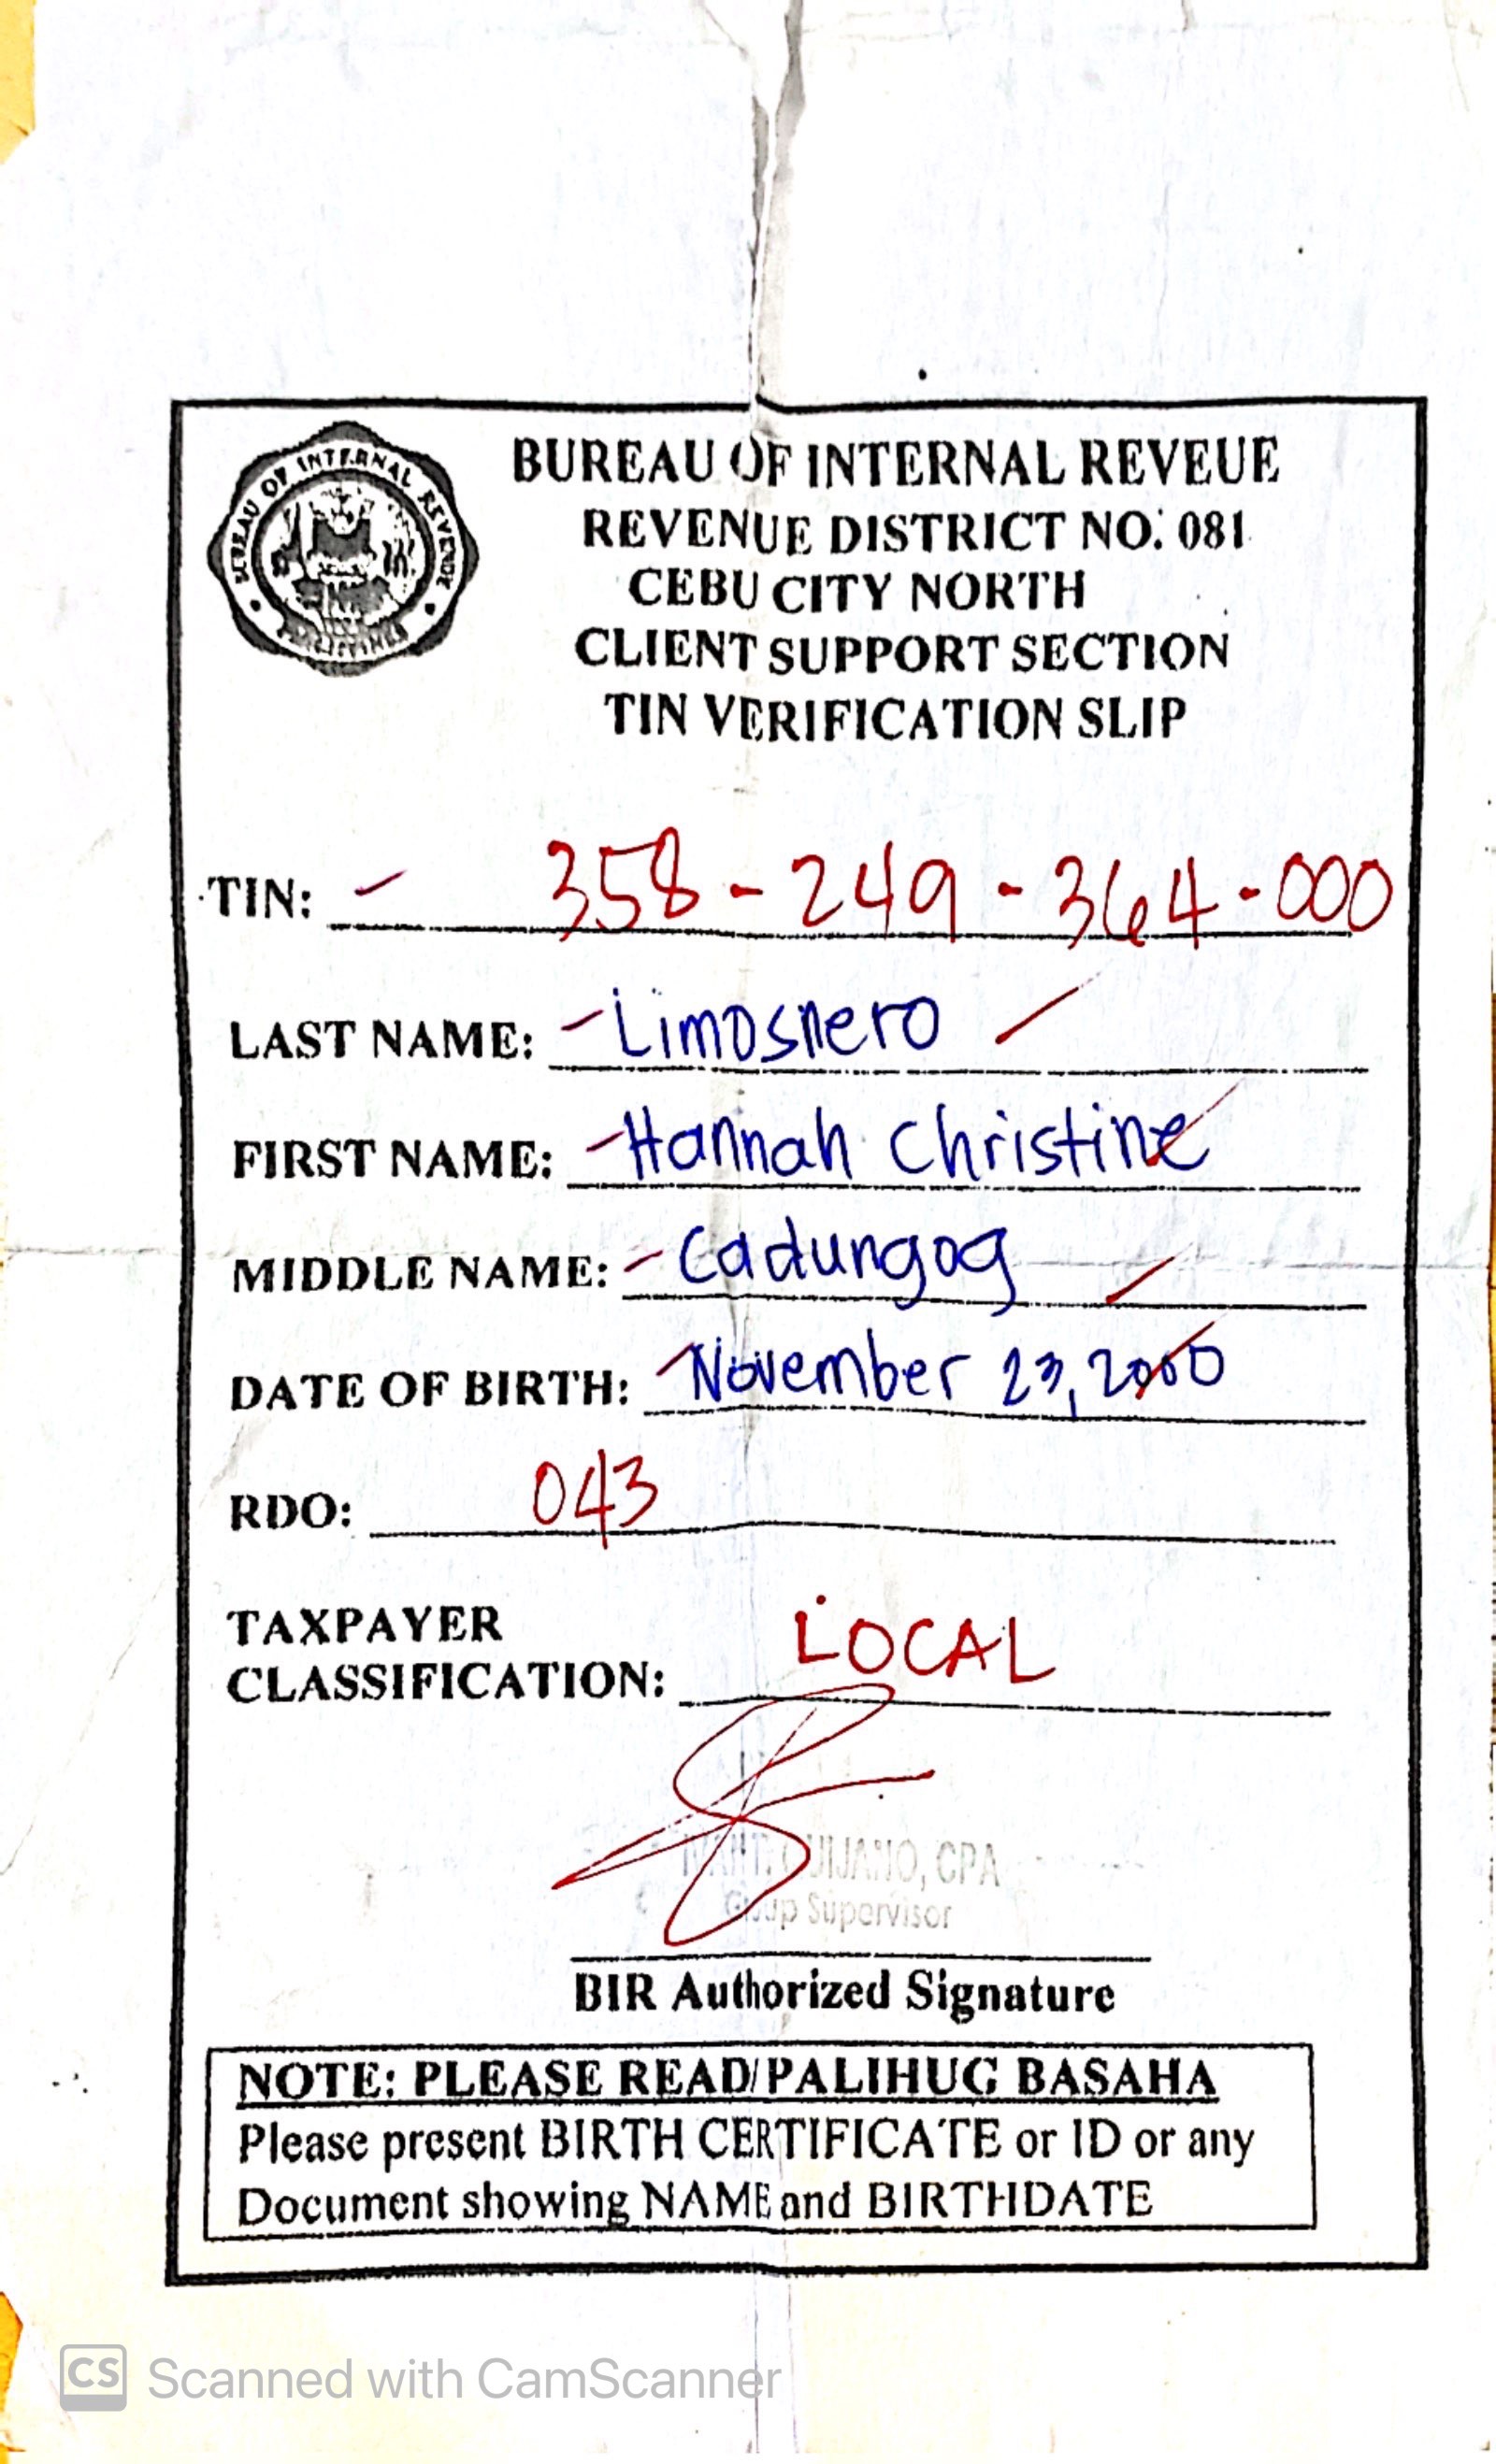 BUREAU OF INTERNAL REVENUE
PHILIPPINES
BUREAU OF INTERNAL REVEUE
REVENUE DISTRICT NO. 081
CEBU CITY NORTH
CLIENT SUPPORT SECTION
TIN VERIFICATION SLIP
TIN: - 358-249-364-000
LAST NAME: -Limosnero
FIRST NAME: -Hannah Christine
MIDDLE NAME: -Cadungog
DATE OF BIRTH: -November 23, 2000
RDO: 043
TAXPAYER LOCAL
CLASSIFICATION:
CPA
Group Supervisor
BIR Authorized Signature
NOTE: PLEASE READ/PALIHUG BASAHA
Please present BIRTH CERTIFICATE or ID or any
Document showing NAME and BIRTHDATE
CS Scanned with CamScanner